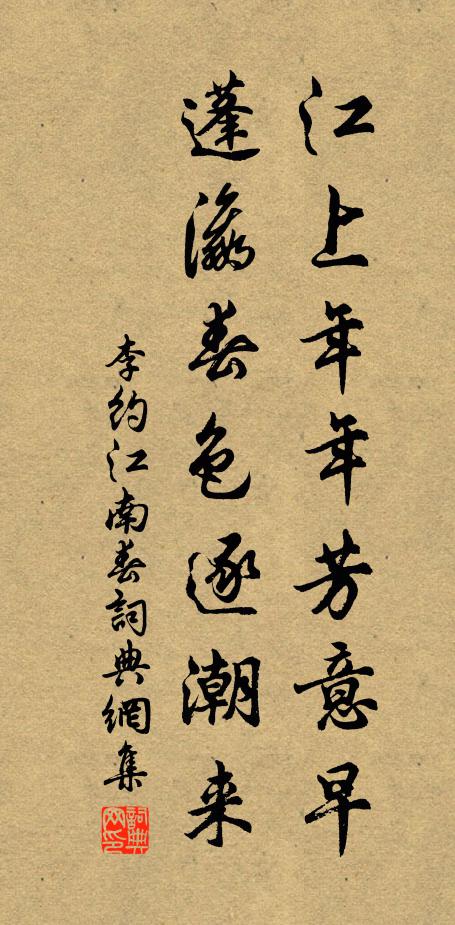 江上年年芳意早
蓬瀛春色逐潮来
李約江南春詞典網集
詞典网印